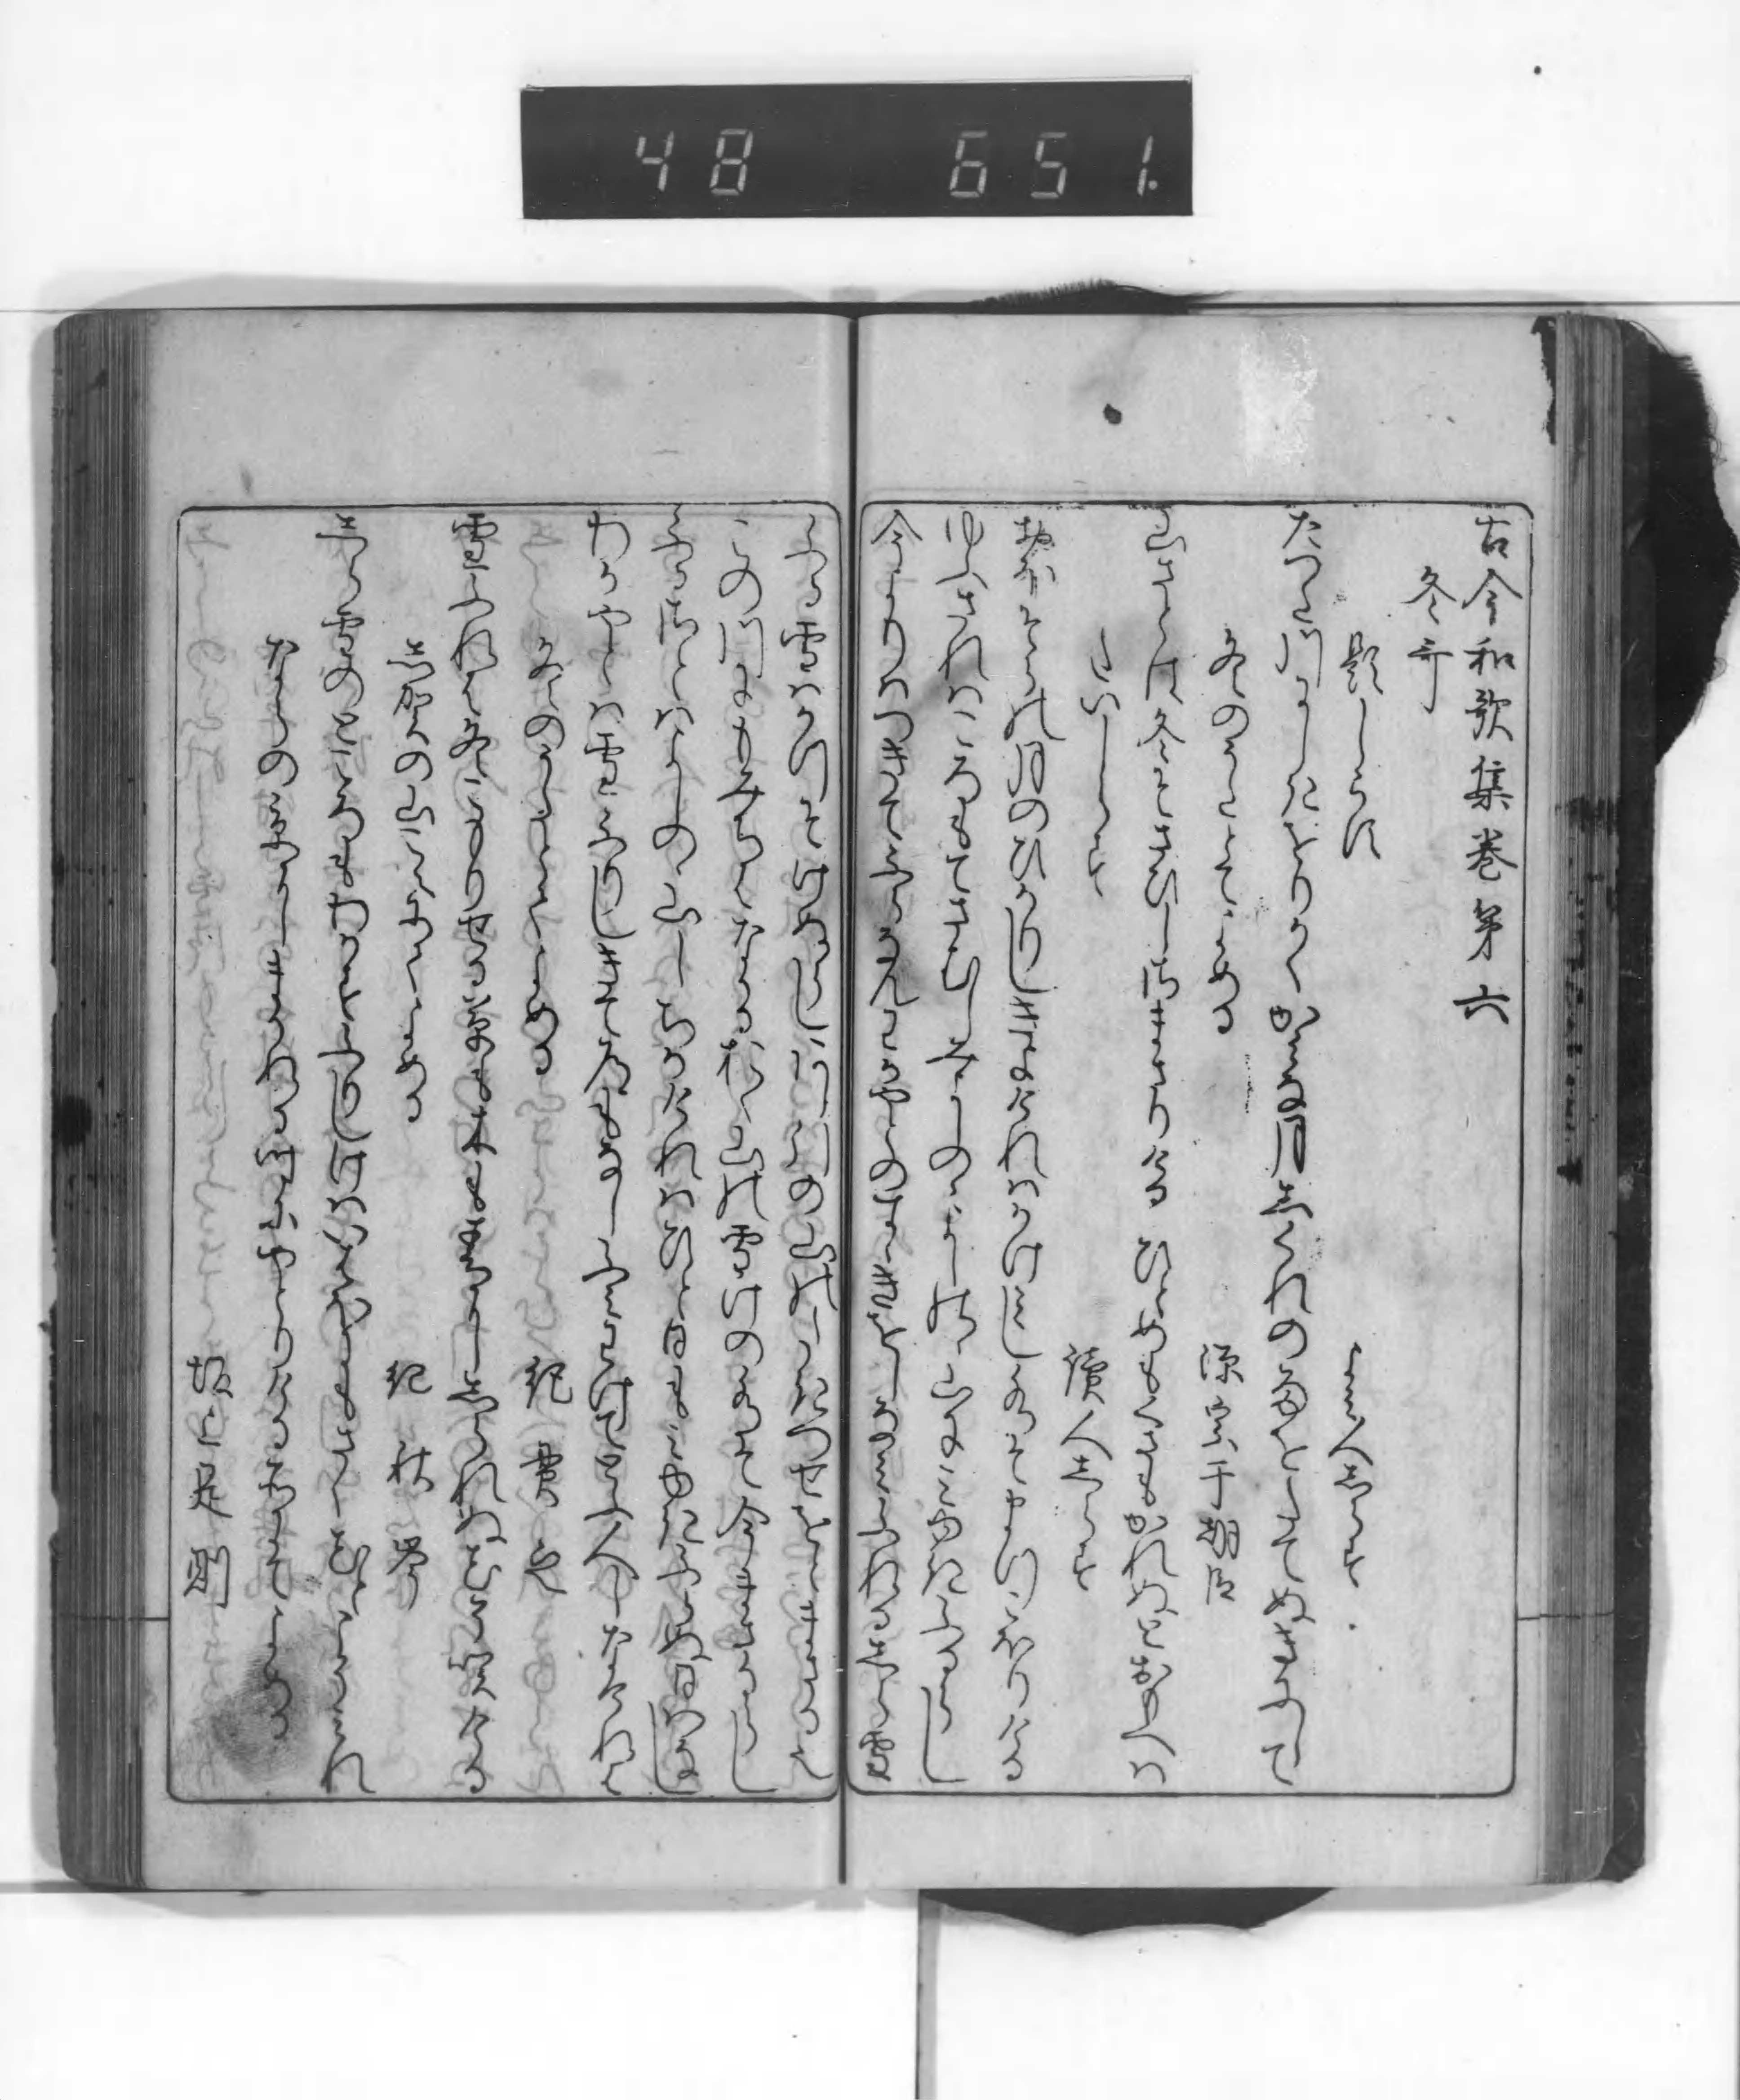 古今和歌集巻第六
冬哥
題しらす　よみ人しらす
たつた川にしきをりかく神な月しくれの雨をたてぬきにして
冬のうたとてよめる　源宗于朝臣
山さとは冬そさひしさまさりけるひとめもくさもかれぬとおもへは
たいしらす　讀人しらす
おほそらの月のひかりしきよけれはかけみし水そまつこほりける
ゆふされはころもてさむしみよしのゝよしのゝ山にみ雪ふるらし
今よりはつきてふらなんわかやとのすゝきをしなみふれるしら雪
ふる雪はかつそけぬらしあしひきの山のたきつせをとまさるなり
この川にもみちはなかるおく山の雪けの水そ今まさるらし
ふるさとはよしのゝ山しちかけれはひと日もみゆきふらぬ日はなし
わかやとは雪ふりしきてみちもなしふみわけてとふ人しなけれは
冬のうたとてよめる　紀貫之
雪ふれは冬こもりせる草も木も春にしられぬ花そさきける
志賀の山こえにてよめる　紀秋岑
しら雪のところもわかすふりしけはいはほにもさく花とこそみれ
ならの京にまかれりける時にやとれりける所にてよめる
坂上是則